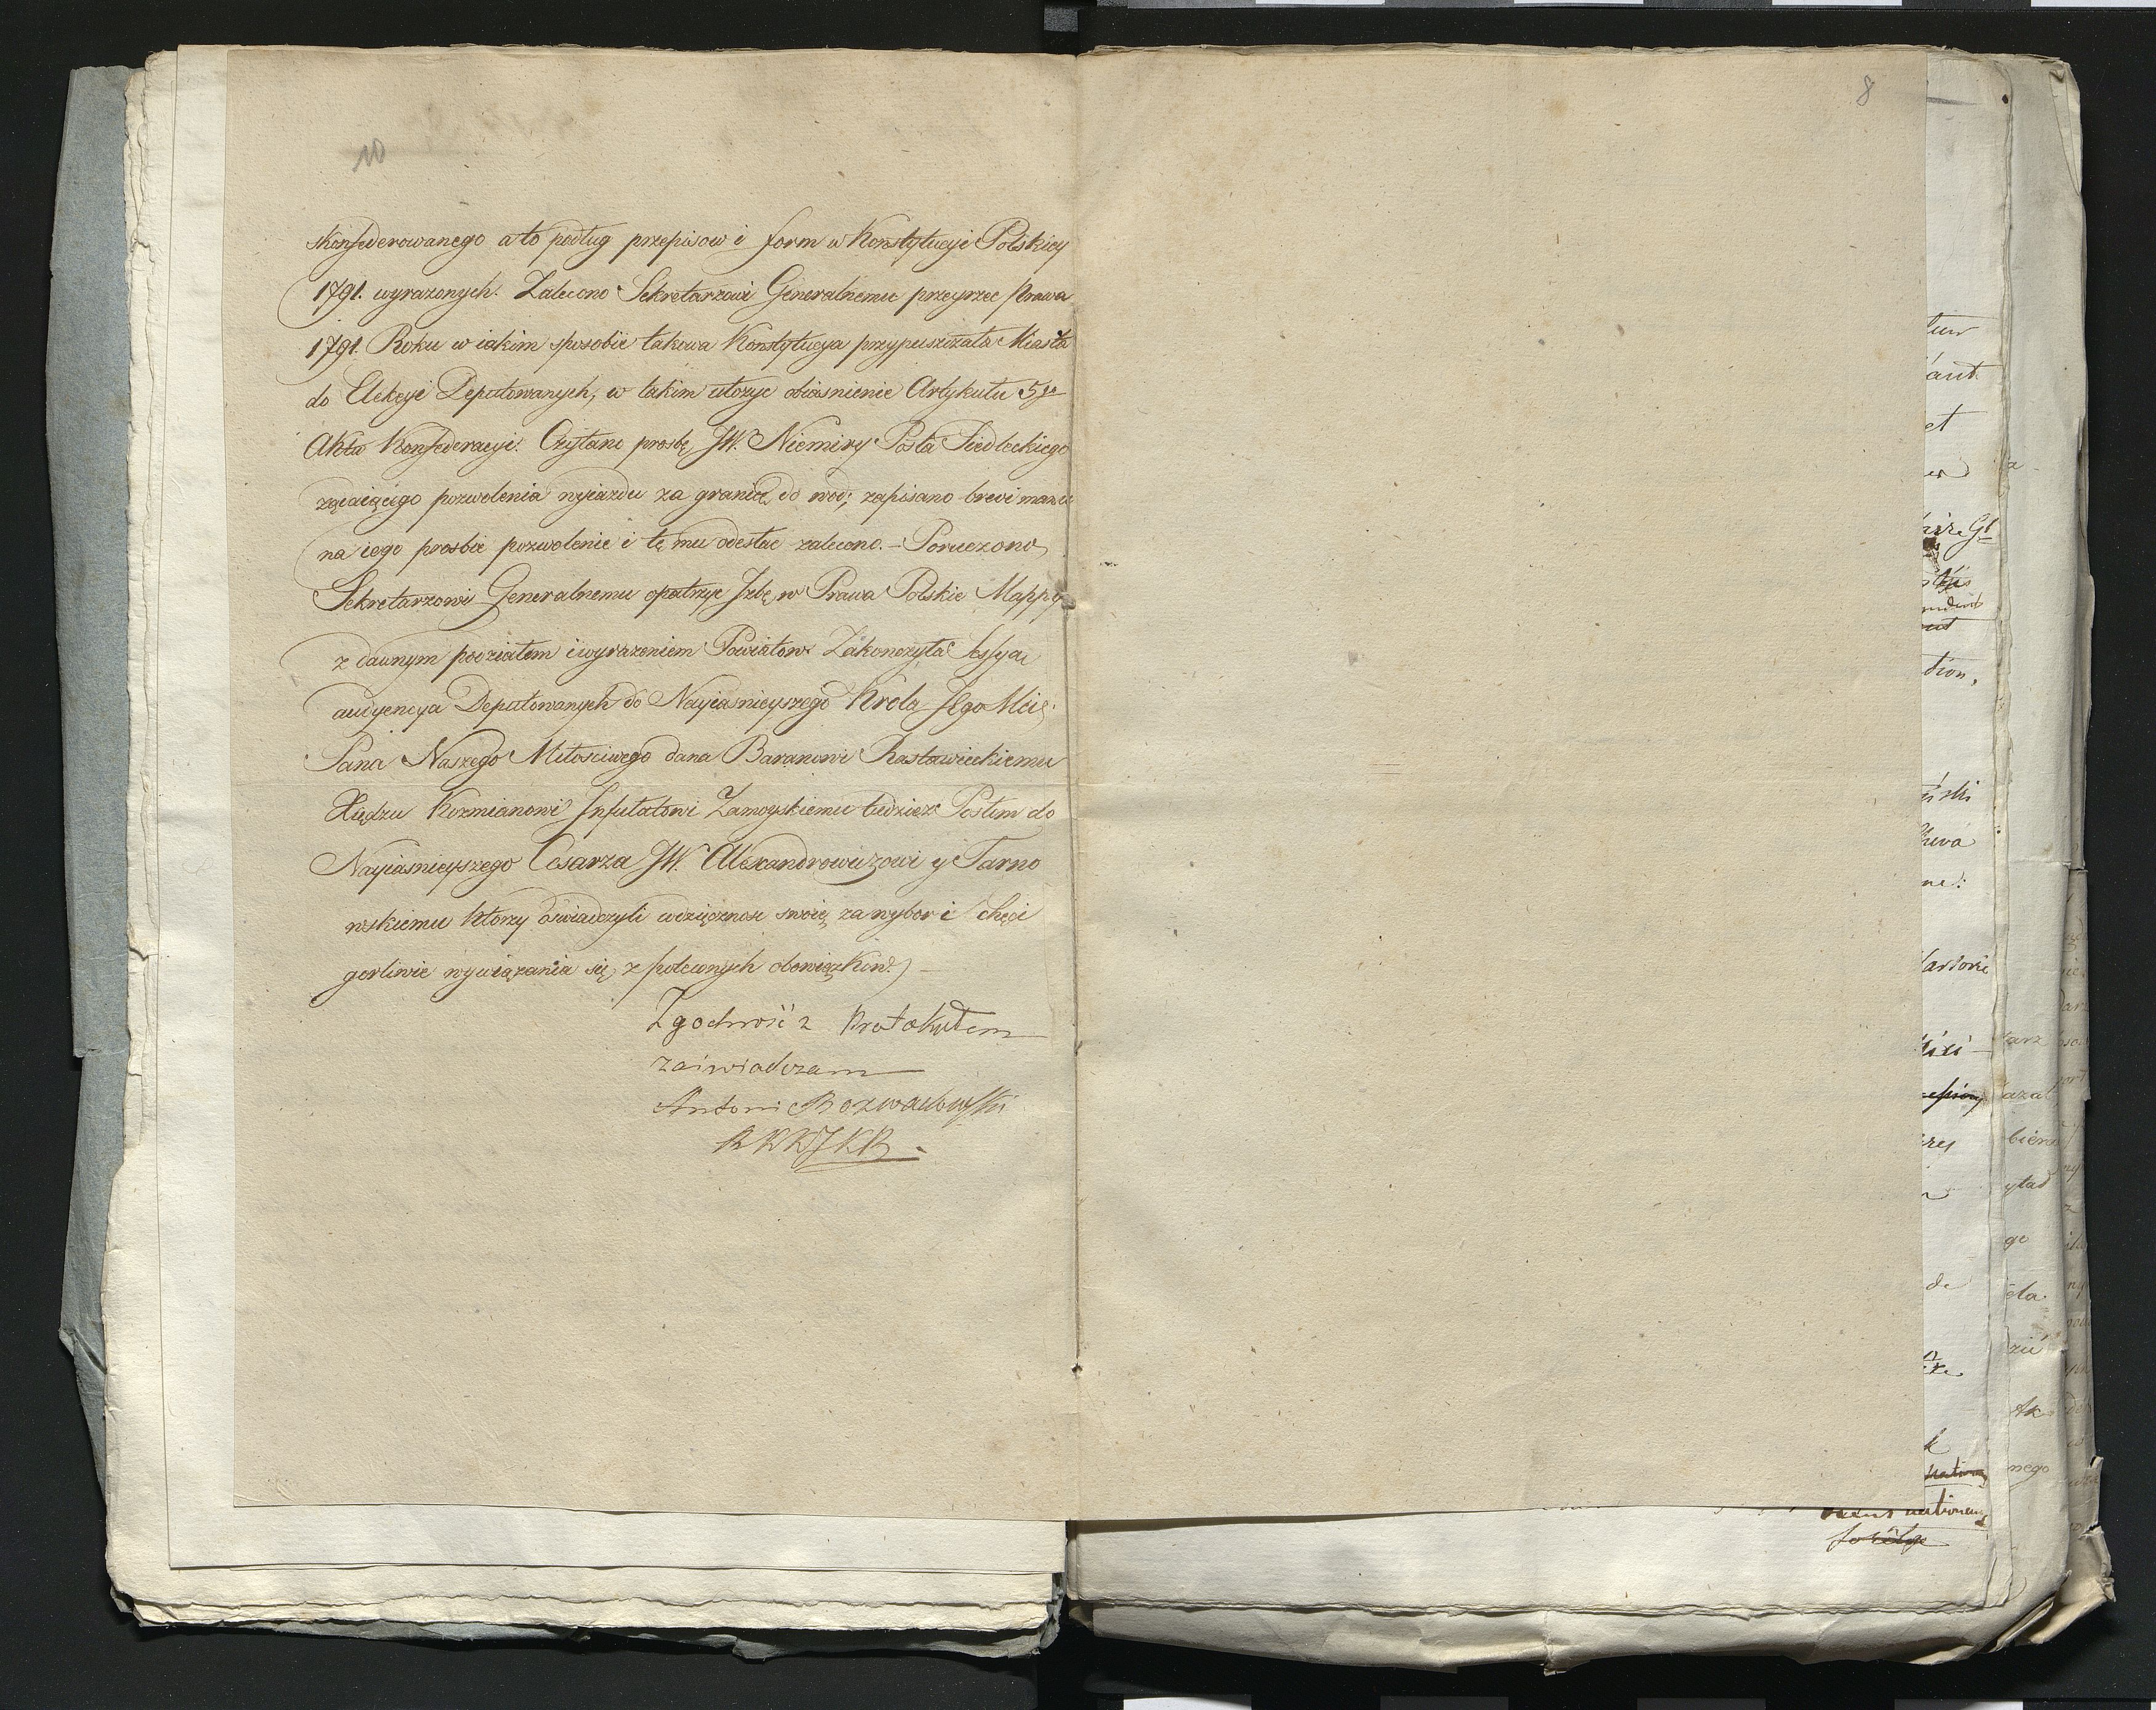 10
skonfederowanego a to podług przepisow i form w Konstytucyi Polskiey
1791. wyrazonych. Zalecono Sekretarzowi Generalnemu przeyrzec Prawa
1791. Roku w iakim sposobie takowa Konstytucya przypuszczała Miasta
do Elekcyi Deputowanych, w takim ułozyc obiasnienie Artykułu 5go
Aktu Konfederacyi. Czytano prosbę JW. Niemiry Posła Siedleckiego
ządaiącego pozwolenia wyiazdu za granicę do wod; zapisano brevi manu
na iego prosbie pozwolenie i tę mu odesłac zalecono. – Poruczono
Sekretarzowi Generalnemu opatrzyc Izbę w Prawa Polskie Mappę
z dawnym podziałem i wyrazeniem Powiatow Zakonczyła Sessyą
audyencya Deputowanych do Nayiasnieyszego Krola Jego Mci
Pana Naszego Miłosciwego dana Baranowi Rastawieckiemu
Xiędzu Kozmianowi Infułatowi Zamoyskiemu tudziez Posłom do
Nayiasnieyszego Cesarza JW. Alexandrowiczowi y Tarno
wskiemu ktorzy oswiadczyli wdzięcznosc swoię za wybor i chęci
gorliwie wywiązania się z poleconych obowiązkow.
Zgodność z Protokułem
zaświadczam
Antoni Rozwadowski
8
tion,
ne:
de
go
nego